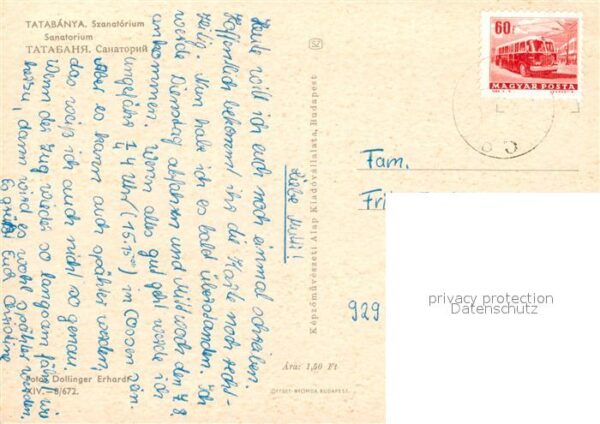 TATABÁNYA. Szanatórium
Sanatorium
ТАТАБАНЯ. Санаторий
Liebe Mutti!
Heute will ich euch noch einmal schreiben.
Hoffentlich bekommt ihr die Karte noch recht-
zeitig. Nun habe ich es bald überstanden. Ich
werde Dienstag abfahren und Mittwoch den 4.8.
ankommen. Wenn alles gut geht werde ich
ungefähr 14 Uhr (15.15°°) in Cossen sein.
Aber es kann auch später werden,
das weiß ich auch nicht so genau.
Wenn der Zug wieder so langsam fährt wie
hinzu, dann wird es wohl später werden.
Es grüßt Euch Christine
Foto: Dollinger Erhardt
XIV.—8/672.
Képzőművészeti Alap Kiadóvállalata, Budapest
Ára: 1,50 Ft
OFFSET-NYOMDA, BUDAPEST.
60f
MAGYAR POSTA
Fam.
929
privacy protection
Datenschutz